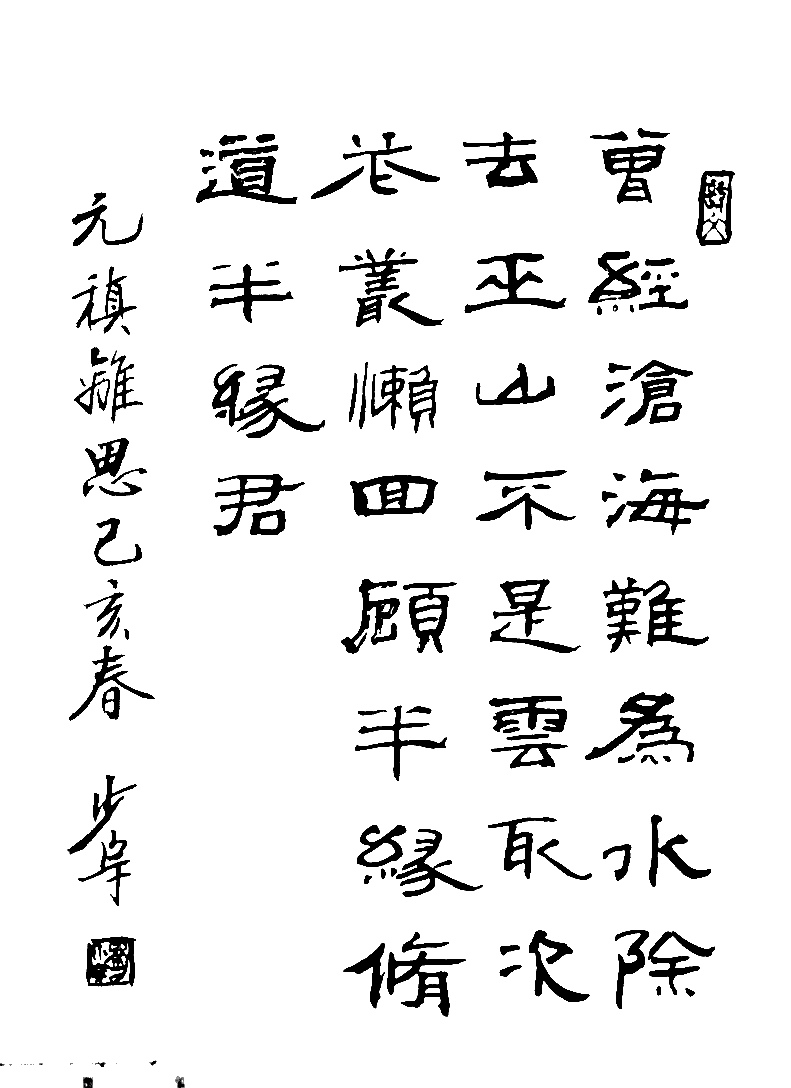 曾經滄海難為水除
去巫山不是雲取次
花叢懶回顧半緣脩
道半緣君
元稹離思己亥春 步